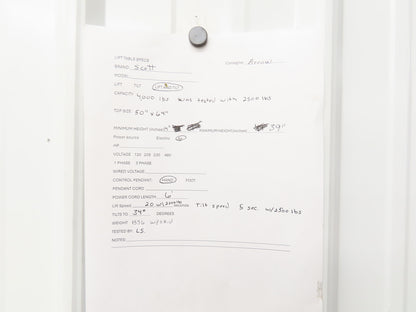 LIFT TABLE SPECS
BRAND: Scott Company: Arrow
MODEL:
LIFT TILT LIFT & TILT
CAPACITY 4000 lbs was tested with 2500 lbs
TOP SIZE 50" x 64"
MINIMUM HEIGHT MAXIMUM HEIGHT 39"
Power source Electric
HP
VOLTAGE 120 208 230 460
1 PHASE 3 PHASE
WIRED VOLTAGE
CONTROL PENDANT: HAND FOOT
PENDANT CORD
POWER CORD LENGTH 6'
Lift Speed 20 seconds Tilt speed 5 sec w/2500 lbs
TILTS TO 34° DEGREES
WEIGHT 1536 w/skid
TESTED BY: LS.
NOTES